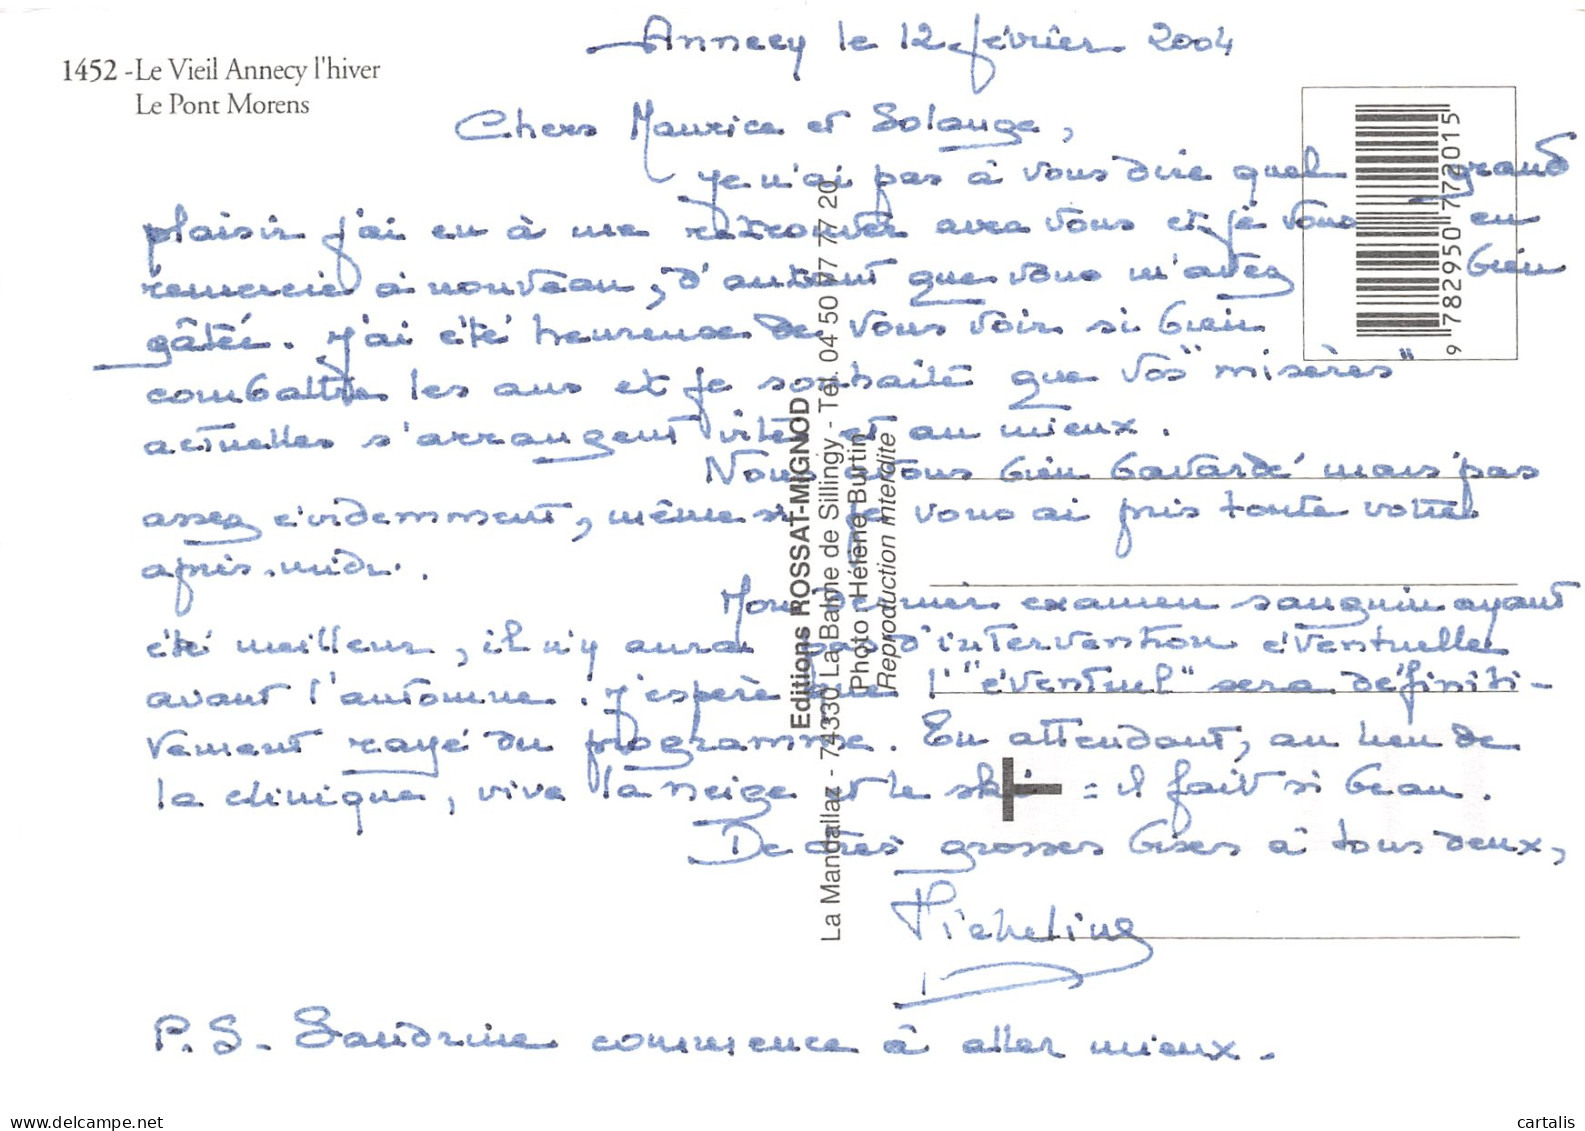 1452 - Le Vieil Annecy l'hiver
Le Pont Morens
Annecy le 12 février 2004
Chers Maurice et Solange,
Je n'ai pas à vous dire quel grand
plaisir j'ai eu à me retrouver avec vous et je vous en
remercie à nouveau, d'autant que vous m'avez bien
gâtée. J'ai été heureuse de vous voir si bien
combattre les ans et je souhaite que vos "misères"
actuelles s'arrangent vite et au mieux.
Nous avons bien bavardé mais pas
assez évidemment, même si je vous ai pris toute votre
après-midi.
Mon dernier examen sanguin ayant
été meilleur, il n'y aura pas d'intervention éventuelle
avant l'automne. J'espère que l'"éventuel" sera définiti-
vement rayé du programme. En attendant, au lieu de
la clinique, vive la neige et le ski : il fait si beau.
De très grosses bises à tous deux,
Micheline
P.S. Sandrine commence à aller mieux.
Editions ROSSAT-MIGNOD
La Mandallaz - 74330 La Balme de Sillingy - Tél. 04 50 77 77 20
Photo Hélène Burtin
Reproduction interdite
9 782950 772015
T
www.delcampe.net
cartalis